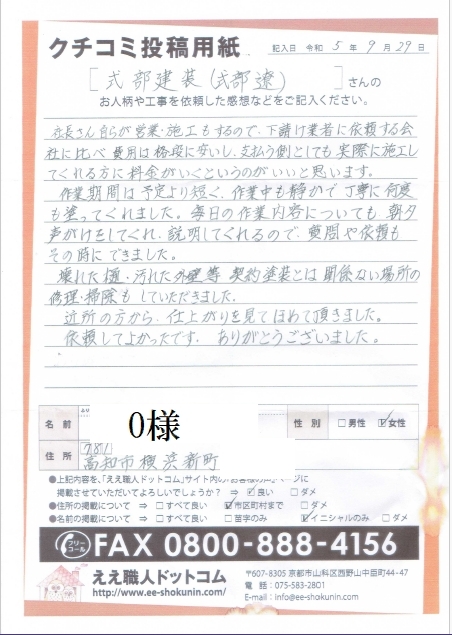 クチコミ投稿用紙
記入日 令和 5年 9月 29日
[式部建装(式部遼)]さんの
お人柄や工事を依頼した感想などをご記入ください。
社長さん自らが営業・施工もするので、下請け業者に依頼する会
社に比べ費用は格段に安いし、支払う側としても実際に施工し
てくれる方に料金がいくというのがいいと思います。
作業期間は予定より短く、作業中も静かで丁寧に何度
も塗ってくれました。毎日の作業内容についても朝夕
声がけをしてくれ、説明してくれるので、質問や依頼も
その時にできました。
壊れた樋・汚れた外壁等 契約塗装とは関係ない場所の
修理・掃除もしていただきました。
近所の方から、仕上がりを見てほめて頂きました。
依頼してよかったです。ありがとうございました。
名前 O様 性別 □男性 ☑女性
住所 〒781
高知市横浜新町
●上記内容を、「ええ職人ドットコム」サイト内の「お客様の声」ページに
掲載させていただいてよろしいでしょうか? ⇒ ☑良い □ダメ
●住所の掲載について ⇒ □すべて良い ☑市区町村まで □ダメ
●名前の掲載について ⇒ □すべて良い □苗字のみ ☑イニシャルのみ □ダメ
フリーコール FAX 0800-888-4156
ええ職人ドットコム
http://www.ee-shokunin.com/
〒607-8305 京都市山科区西野山中臣町44-47
電話:075-583-2801
E-mail:info@ee-shokunin.com